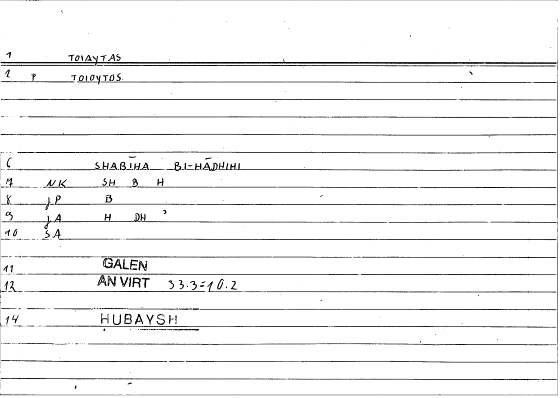 1 TOIAYTAS
2 P TOIOYTOS
6 SHABĪHA BI-HĀDHIHI
7 NK SH B H
8 JP B
9 JA H DH ʾ
10 SA
11 GALEN
12 AN VIRT 33.3=10.2
14 HUBAYSH